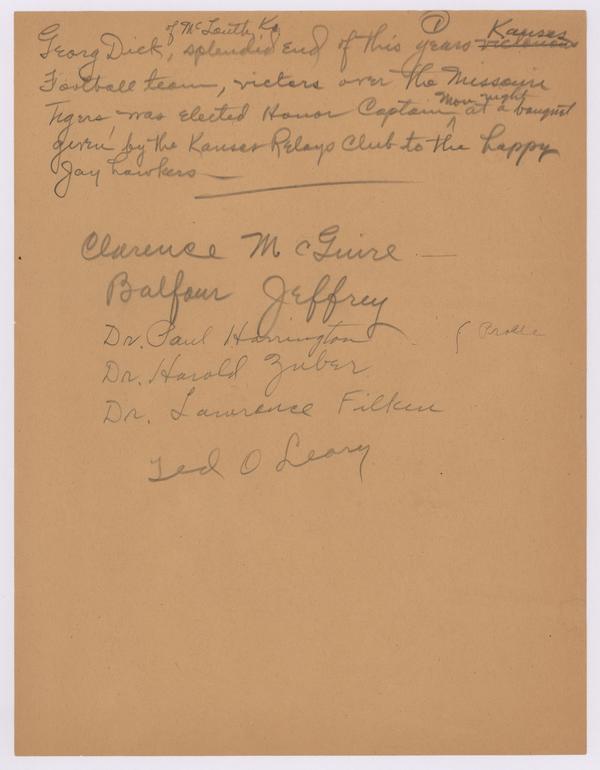 ①
of McLouth, Ks,
Georg Dick, splendid end of this years Kansas victorious
Football team, victors over the Missouri
Tigers, was elected Honor Captain Mon. night at a banquet
given by the Kansas Relays Club to the happy
Jay hawkers —
Clarence McGuire —
Balfour Jeffrey
Dr. Paul Harrington
Dr. Harold Zuber
Dr. Lawrence Filken
Ted O Leary